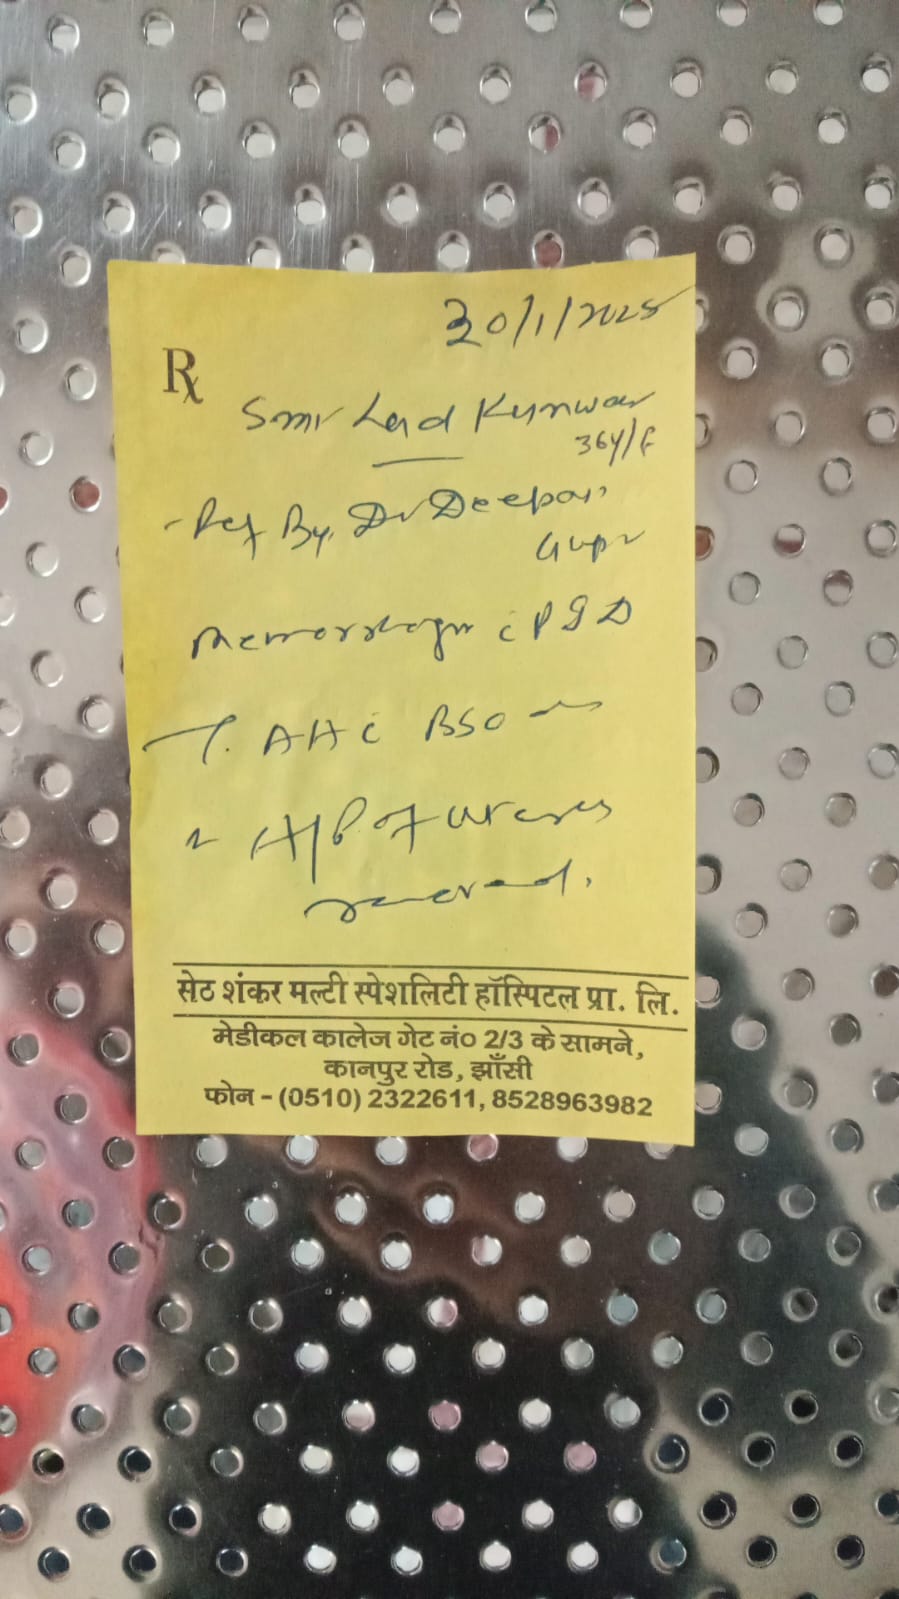 30/1/2025
Rx
Smt Lad Kunwar
36y/F
- Ref By. Dr Deepak
Gupt
Memorrhagi c P I D
T. AH c BSO
H/P of uterus
removed.
सेठ शंकर मल्टी स्पेशलिटी हॉस्पिटल प्रा. लि.
मेडीकल कालेज गेट नं० 2/3 के सामने,
कानपुर रोड, झाँसी
फोन - (0510) 2322611, 8528963982